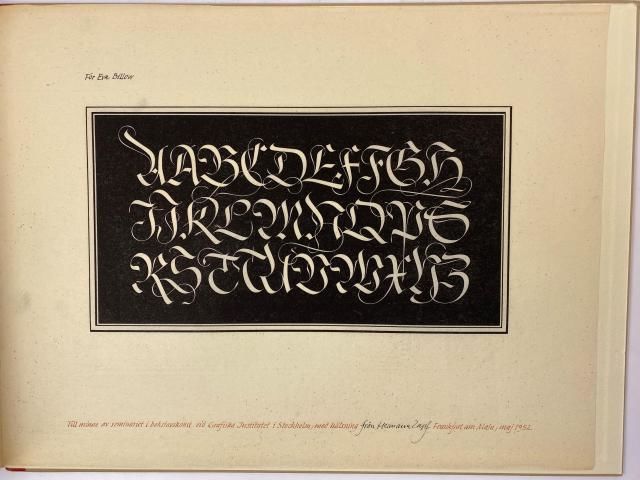 För Eva Billow
AABCDEFFGH
IJKLMNOPS
RSTUVWXYZ
Till minne av seminariet i bokstavskonst vid Grafiska Institutet i Stockholm, med hälsning från Hermann Zapf Frankfurt am Main, maj 1952